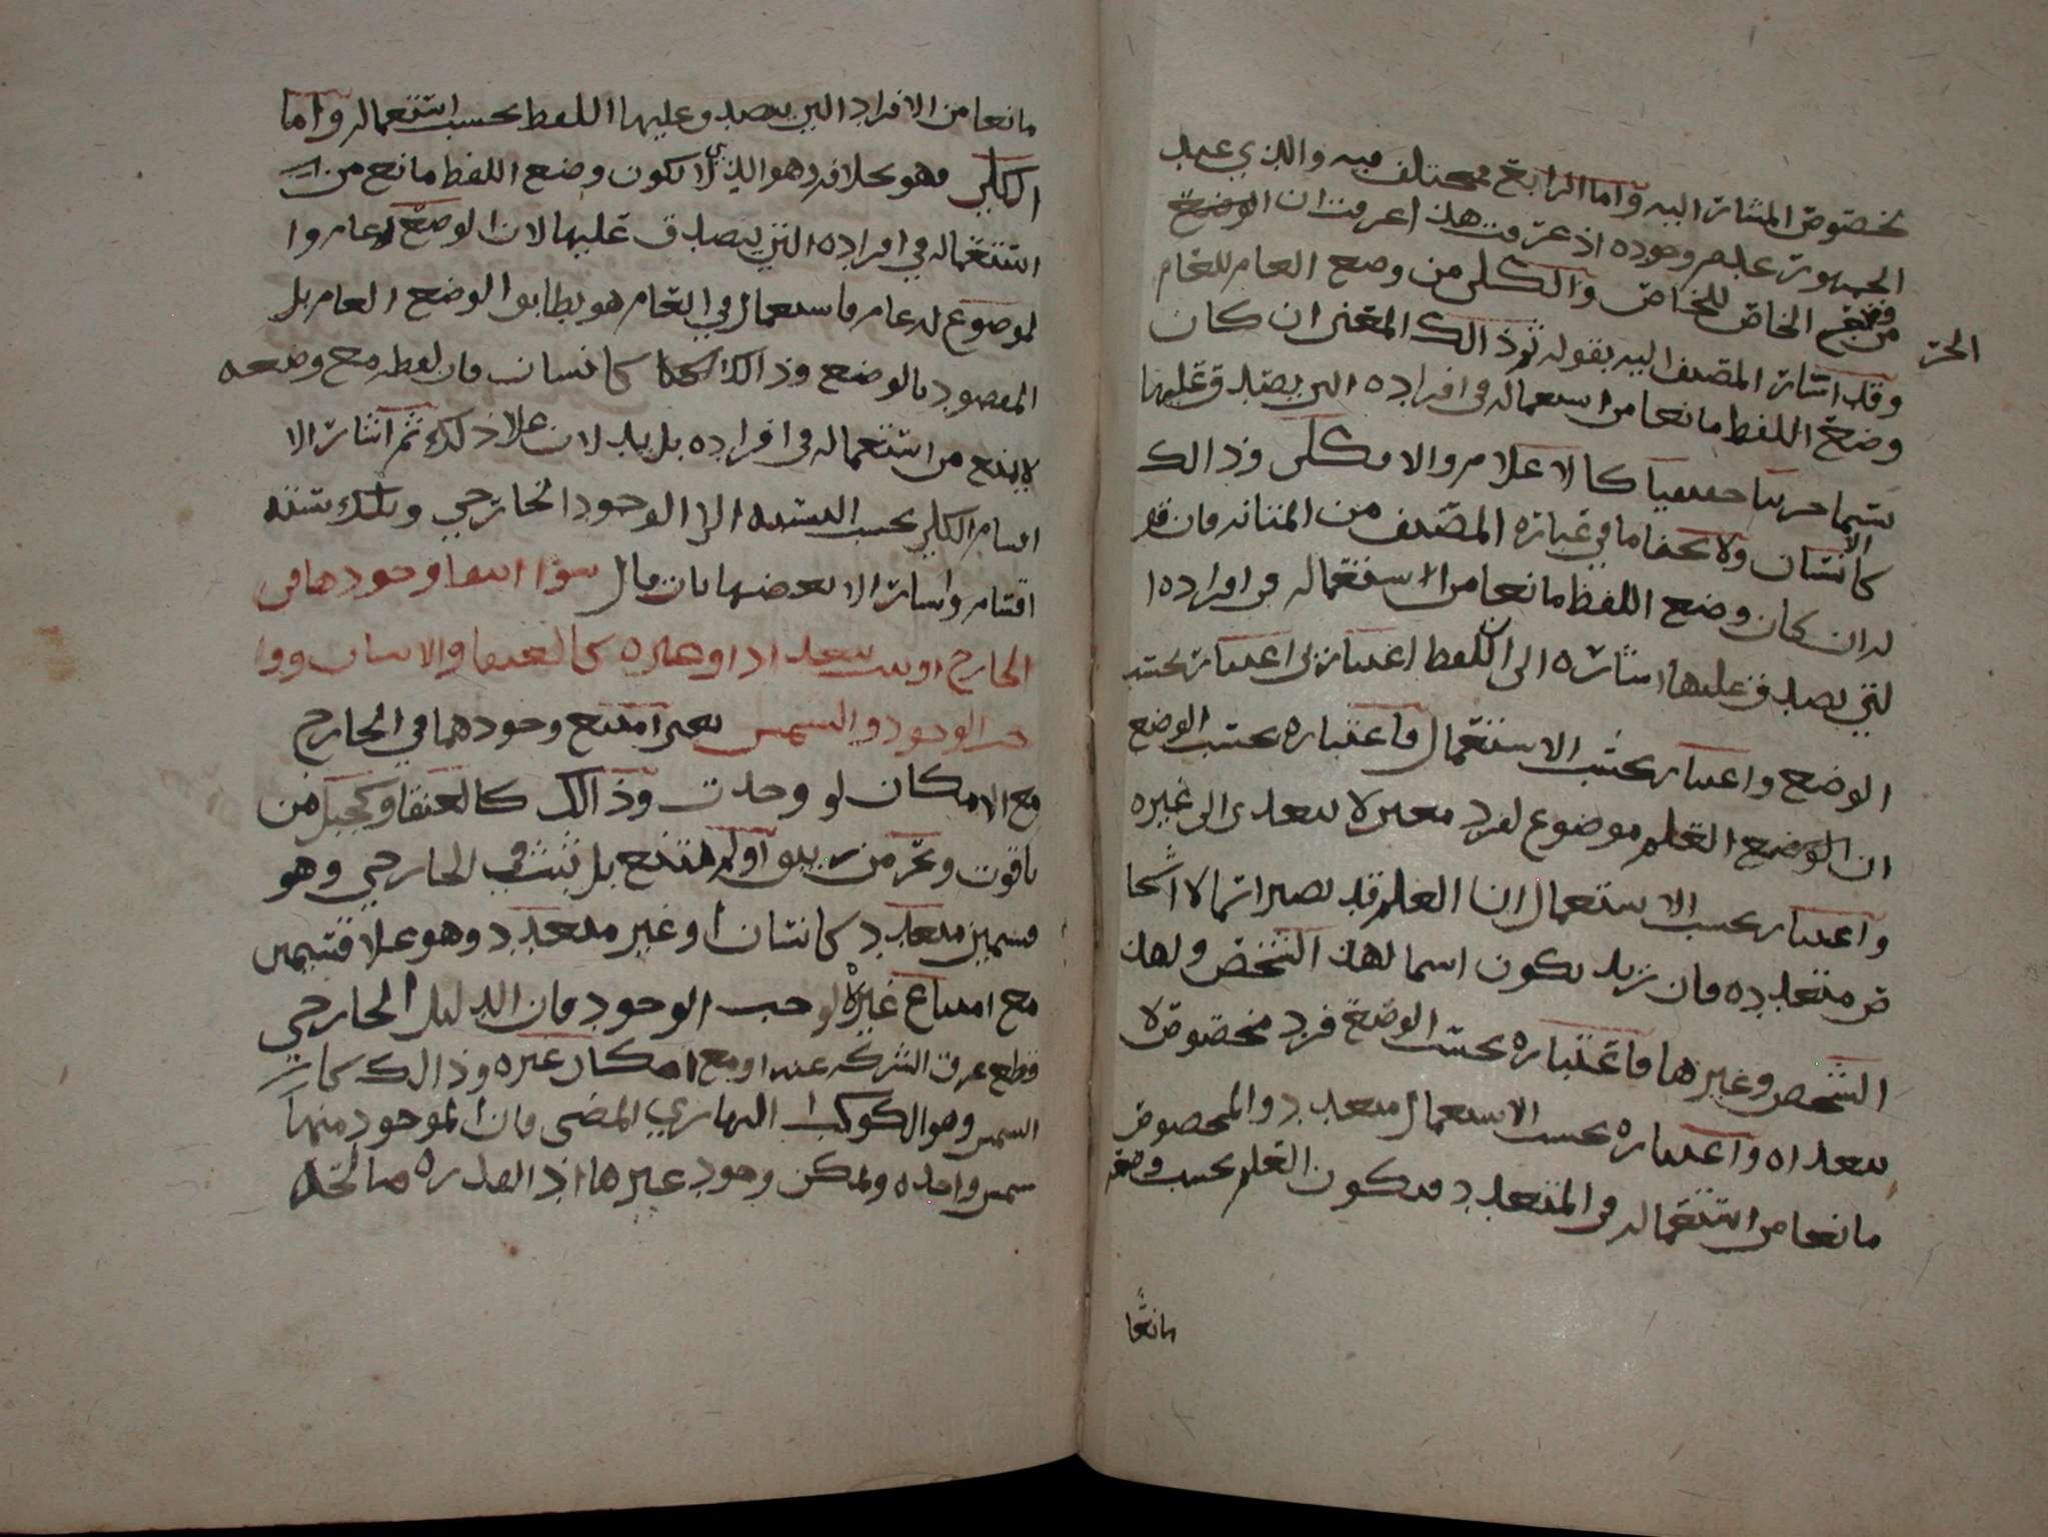 بخصوص المشار اليه واما الرابع فمختلف فيه والذي عند
الجمهور عدم وجوده اذ عرفت هذا عرفت ان الوضع
الجز
من وضع الخاص للخاص والكلى من وضع العام للعام
وقد اشار المصنف اليه بقوله ثم ذالك المعنى ان كان
وضع اللفظ مانعا من استعماله فى افراده التى يصدق عليها
يسما جزىيا حقيقيا كالاعلام والا فكلى وذالك
كالانسان ولا يخفا ما في عبارة المصنف من المتانه فان قو
له ان كان وضع اللفظ مانعا من الاستعماله فى افراده ا
لتي يصدق عليها اشاره الى ان اللفظ اعتبارين اعتبار بحسب
الوضع واعتبار بحسب الاستعمال فاعتباره بحسب الوضع
ان الوضع العلم موضوع لفرد معين لا يتعدى الى غيره
واعتبار بحسب الاستعمال ان العلم قد يصير اسما لاشخا
ص متعدده فان زيد يكون اسما لهذ الشخص ولهذ
الشخص وغيرها فاعتباره بحسب الوضع فرد مخصوص لا
يتعداه واعتباره بحسب الاستعمال متعدد والمخصوص
مانعا من استعماله فى المتعدد فيكون العلم بحسب وضعه
مانعًا
مانعا من الافراد التي يصدق عليها اللفظ بحسب استعماله واما
الكلي فهو بخلافه وهو الذي لا يكون وضع اللفظ مانع من
استعماله في افراده التي يصدق عليها لان الوضع له عام وا
لموضوع له عام فاستعمال في العام هو يطابق الوضع العام بل
المقصود بالوضع وذالك كانسان فان لفظه مع وضعه
لا يمنع من استعماله فى افراده بل يدلان علا ذلك ثم اشار الا
اقسام الكلي بحسب النسبه الى الوجود الخارجي وتلك سته
اقسام واشار الا بعضها بان قال سوا انتفا وجودها فى
الخارج او تعدد افراده كالعنقا والانسان ووا
جب الوجود والشمس يعني امتنع وجودهما في الخارج
مع الامكان لو وجدت وذالك كالعنقا وكجبل من
ياقوت وبحر من زيبق اولم يمتنع بل ثبت في الخارجي وهو
قسمين متعدد كانسان او غير متعدد وهو علا قسمين
مع امتناع غيره لوجب الوجود فان الدليل الخارجي
قطع عرق الشركه عنه او مع امكان غيره وذالك كان
الشمس وهو الكوكب النهاري المضى فان الموجود منها
شمس واحده ويمكن وجود غيرها اذ القدره صالحه